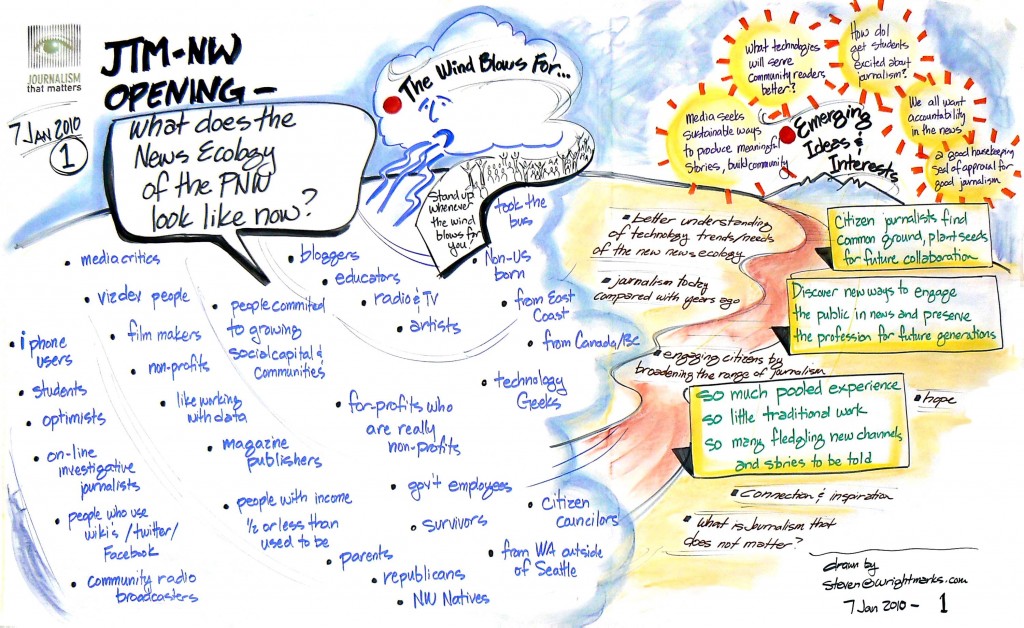 JOURNALISM
that matters
JTM-NW
OPENING -
7 JAN 2010
1
What does the
News Ecology
of the PNW
look like now?
The Wind Blows For...
Stand up
whenever
the wind
blows for
you!
• media critics
• viz dev people
• film makers
• iphone
users
• non-profits
• students
• optimists
• like working
with data
• on-line
investigative
journalists
• people who use
wiki's/twitter/
Facebook
• community radio
broadcasters
• people commited
to growing
social capital &
communities
• magazine
publishers
• people with income
1/2 or less than
used to be
• bloggers
• educators
• radio & TV
• artists
• for-profits who
are really
non-profits
• gov't employees
• survivors
• parents
• republicans
• NW Natives
• took the
bus
• Non-US
born
• from East
Coast
• from Canada/BC
• technology
Geeks
• Citizen
councilors
• from WA outside
of Seattle
What technologies
will serve
community readers
better?
How do I
get students
excited about
journalism?
Media seeks
sustainable ways
to produce meaningful
stories, build community
Emerging
Ideas &
Interests
We all want
accountability
in the news
a good housekeeping
seal of approval for
good jarnalism
▪ better understanding
of technology trends/needs
of the new news ecology
▪ journalism today
compared with years ago
▪ engaging citizens by
broadening the range of journalism
Citizen journalists find
common ground, plant seeds
for future collaboration
Discover new ways to engage
the public in news and preserve
the profession for future generations
So much pooled experience
so little traditional work
so many fledgling new channels
and stories to be told
▪ hope
▪ connection & inspiration
▪ what is journalism that
does not matter?
drawn by
steven@wrightmarks.com
7 Jan 2010 - 1